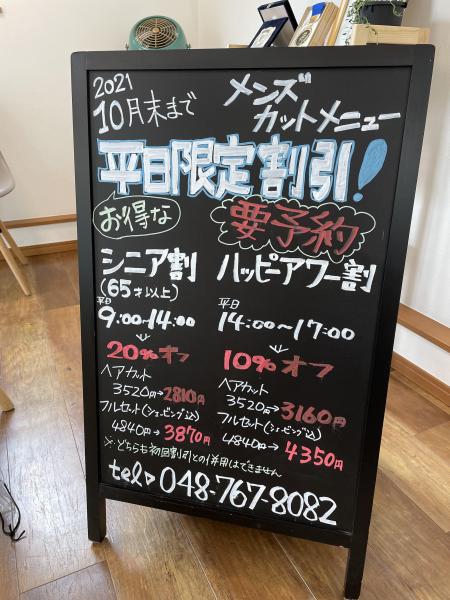 2021
10月末まで
メンズ
カットメニュー
平日限定割引!
お得な
要予約
シニア割
(65才以上)
平日
9:00~14:00
↓
20%オフ
ヘアカット
3520円→2810円
フルセット(シェービング込)
4840円→3870円
ハッピーアワー割
平日
14:00~17:00
↓
10%オフ
ヘアカット
3520円→3160円
フルセット(シェービング込)
4840円→4350円
※どちらも初回割引との併用はできません
tel▷048-767-8082